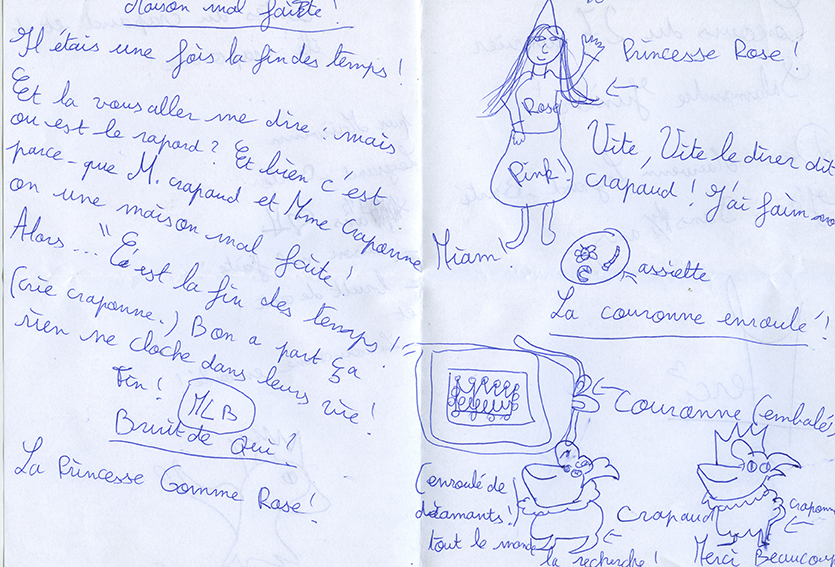 Maison mal faîte !
Il étais une fois la fin des temps !
Et la vous aller me dire : mais
ou est le rapard ? Et bien c'est
parce-que M. crapaud et Mme Craponne
on une maison mal faîte !
Alors... "C'est la fin des temps !"
(crie craponne.) Bon a part ça
rien ne cloche dans leurs vie !
Fin !
MLB
Bruit de Qui !
La Princesse Gomme Rose !
Princesse Rose !
Rose
Pink !
Vite, Vite le diner dit
crapaud ! J'ai faim
Miam !
assiette
La couronne enroulé !
Couronne (embalé
(enroulé de
diamants !)
tout le monde
la recherche !
Crapaud
craponne
Merci Beaucoup